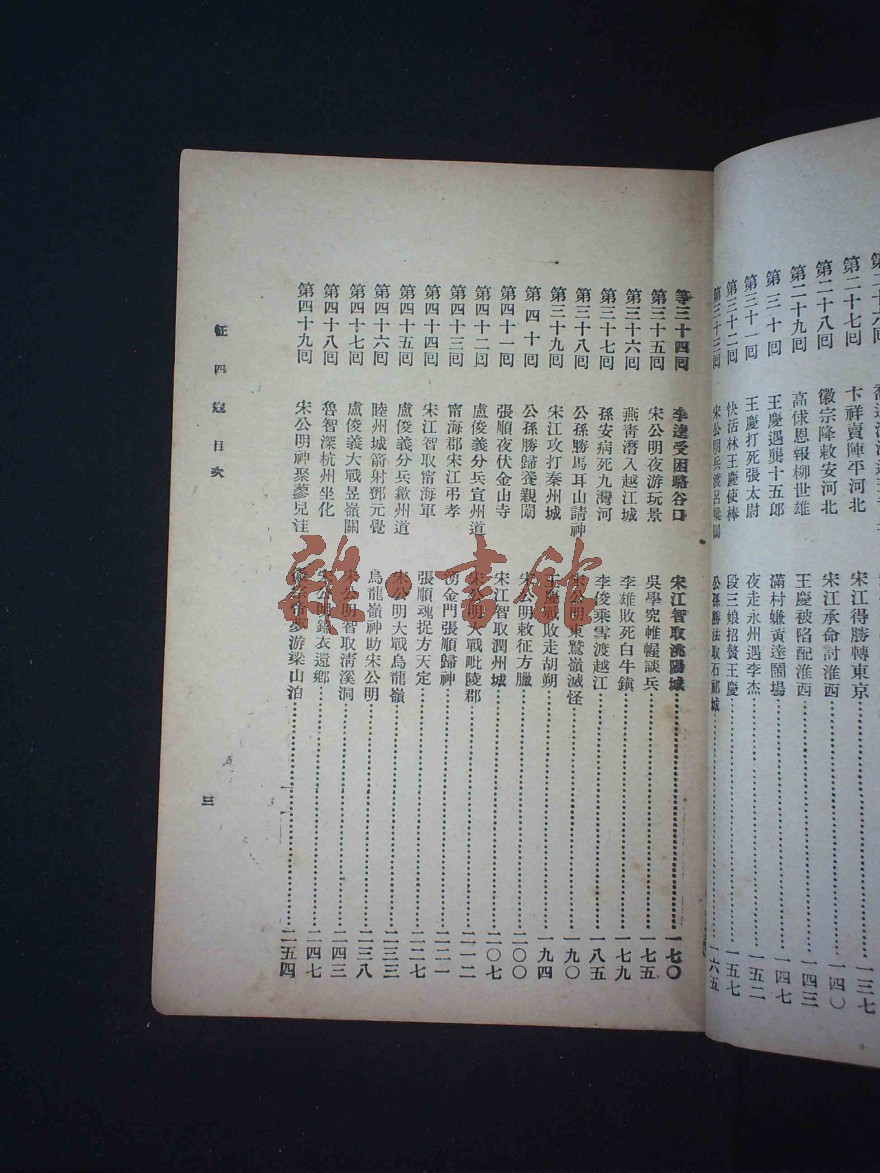 第二十七回
第二十八回 卞祥賣陣平河北 宋江得勝轉東京 一三七
第二十九回 徽宗降敕安河北 宋江承命討淮西 一四〇
高俅恩報柳世雄 王慶被陷配淮西 一四三
第三十回 王慶遇龔十五郎 滿村嫌黃達鬧場 一四七
第三十一回 王慶打死張太尉 夜走永州遇李杰 一五二
第三十二回 快活林王慶使棒 段三娘招贅王慶 一五七
第三十三回 宋公明兵渡呂梁關 公孫勝法取石祁城 一六五
等三十四回 李逵受困駱谷口 宋江智取洮陽城 一七〇
第三十五回 宋公明夜游玩景 吳學究帷幄談兵 一七五
第三十六回 燕靑潛入越江城 李雄敗死白牛鎮 一七九
第三十七回 孫安病死九灣河 李俊乘雪渡越江 一八五
第三十八回 公孫勝馬耳山請神 宋公明東鷲嶺滅怪 一九〇
第三十九回 宋江攻打秦州城 王慶戰敗走胡朔 一九四
第四十回 公孫勝歸養親闈 宋公明敕征方臘 二〇〇
第四十一回 張順夜伏金山寺 宋江智取潤州城 二〇七
第四十二回 盧俊義分兵宣州道 宋公明大戰毗陵郡 二一二
第四十三回 甯海郡宋江弔孝 湧金門張順歸神 二二一
第四十四回 宋江智取甯海軍 張順魂捉方天定 二二七
第四十五回 盧俊義分兵歙州道 宋公明大戰烏龍嶺 二三三
第四十六回 睦州城箭射鄧元覺 烏龍嶺神助宋公明 二三八
第四十七回 盧俊義大戰昱嶺關 宋公明智取淸溪洞 二四三
第四十八回 魯智深杭州坐化 宋公明錦衣還鄉 二四七
第四十九回 宋公明神聚蓼兒洼 徽宗帝夢游梁山泊 二五四
征四寇目次 三
雜·書館